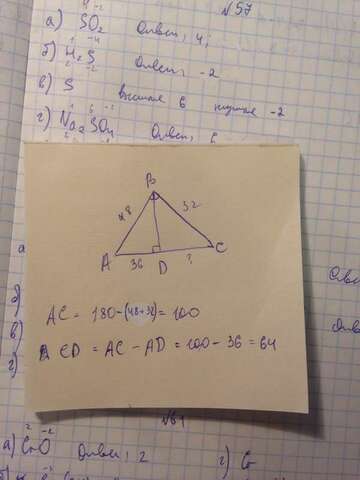 №57
4 -2
а) SO₂ Ответ: 4;
б) H₂S Ответ: -2
в) S высшая 6 низшая -2
г) Na₂SO₄ Ответ: 6
B
48 52
A 36 D ? C
AC = 180-(48+32)=100
CD = AC - AD = 100 - 36 = 64
а
б)
в)
г)
№61
2 -2
а) CrO Ответ: 2 г) Cr